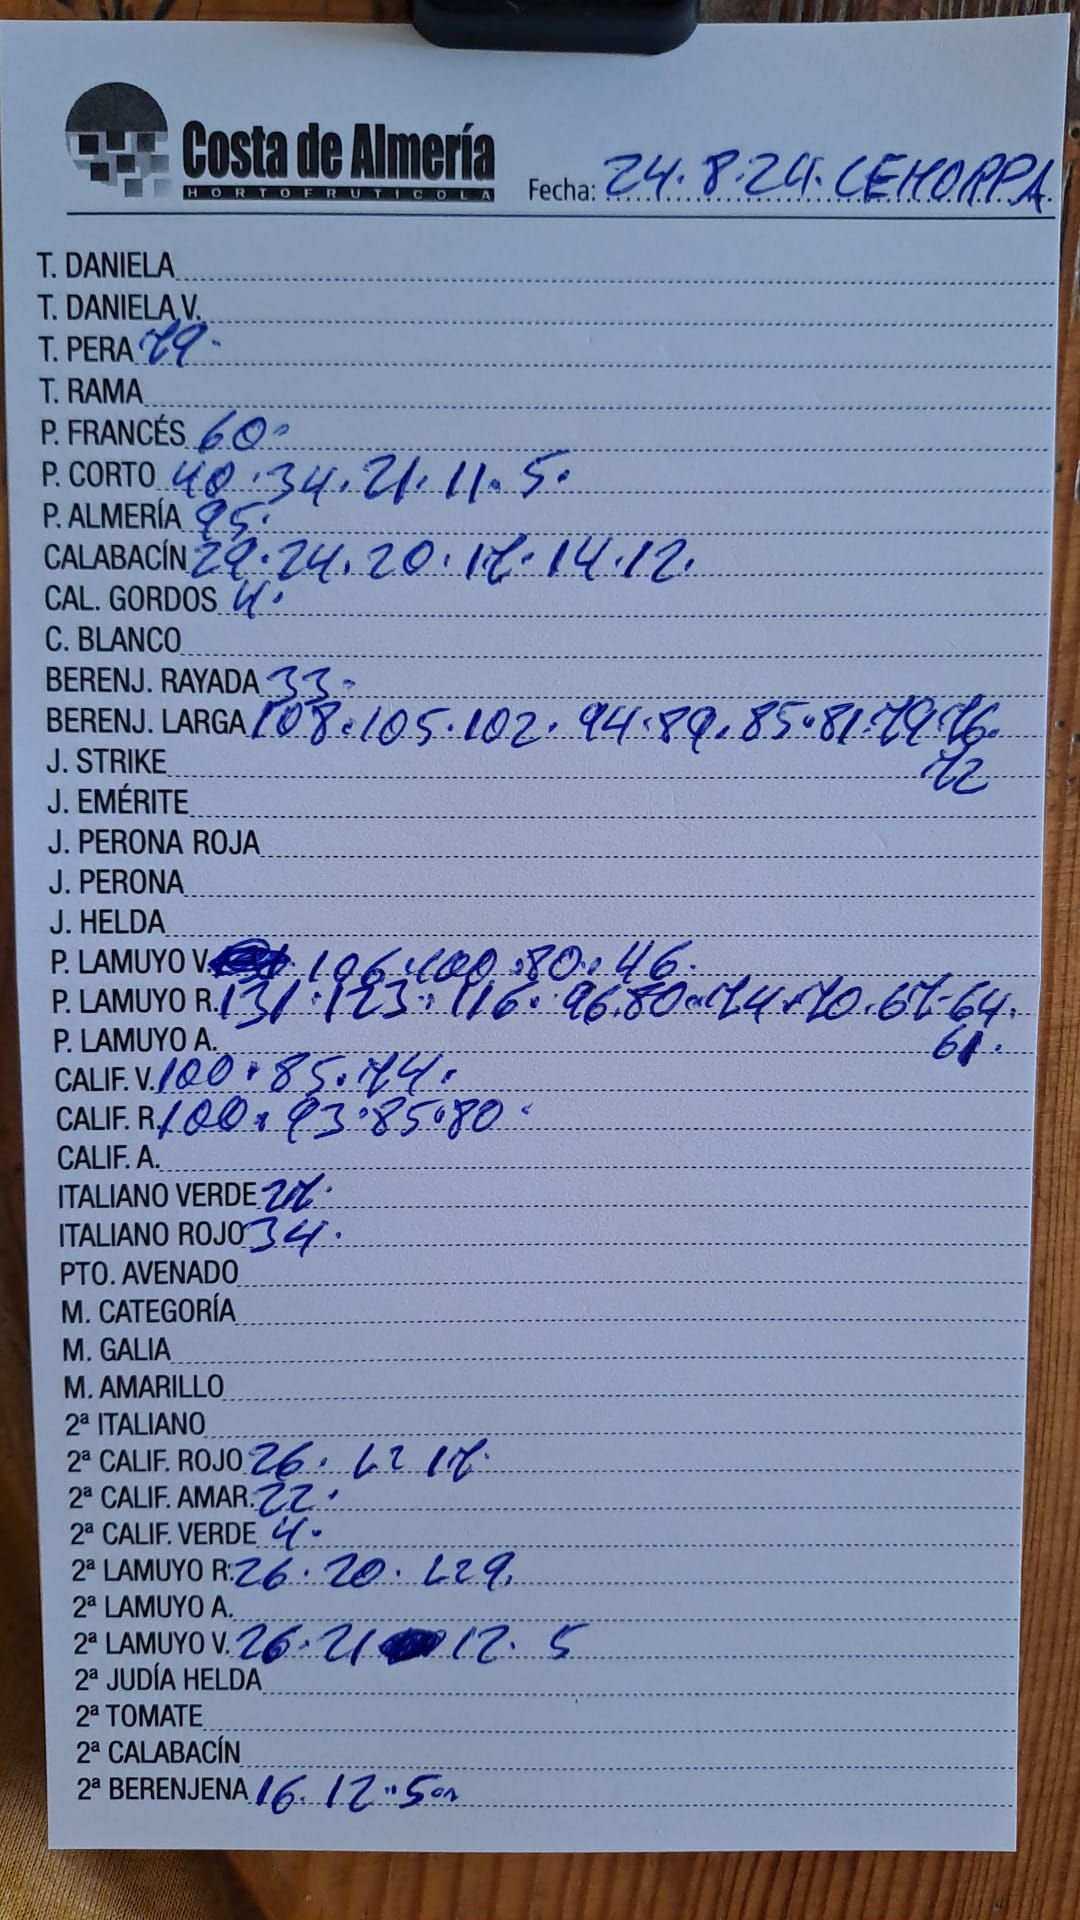 Costa de Almería
HORTOFRUTICOLA
Fecha: 24.8.24. CEHORPA
T. DANIELA
T. DANIELA V.
T. PERA 79.
T. RAMA
P. FRANCÉS 60.
P. CORTO 40.34.21.11.5.
P. ALMERÍA 95.
CALABACÍN 29.24.20.17.14.12.
CAL. GORDOS 4.
C. BLANCO
BERENJ. RAYADA 33.
BERENJ. LARGA 108.105.102.94.89.85.81.79.76.
72
J. STRIKE
J. EMÉRITE
J. PERONA ROJA
J. PERONA
J. HELDA
P. LAMUYO V. 106.100.80.46.
P. LAMUYO R. 131.123.116.96.80.74.70.67.64.
61.
P. LAMUYO A.
CALIF. V. 100.85.74.
CALIF. R. 100.93.85.80.
CALIF. A.
ITALIANO VERDE 27.
ITALIANO ROJO 34.
PTO. AVENADO
M. CATEGORÍA
M. GALIA
M. AMARILLO
2ª ITALIANO
2ª CALIF. ROJO 26. 17.
2ª CALIF. AMAR. 22.
2ª CALIF. VERDE 4.
2ª LAMUYO R. 26.20.
2ª LAMUYO A.
2ª LAMUYO V. 26.21 12.5
2ª JUDÍA HELDA
2ª TOMATE
2ª CALABACÍN
2ª BERENJENA 16.12.5